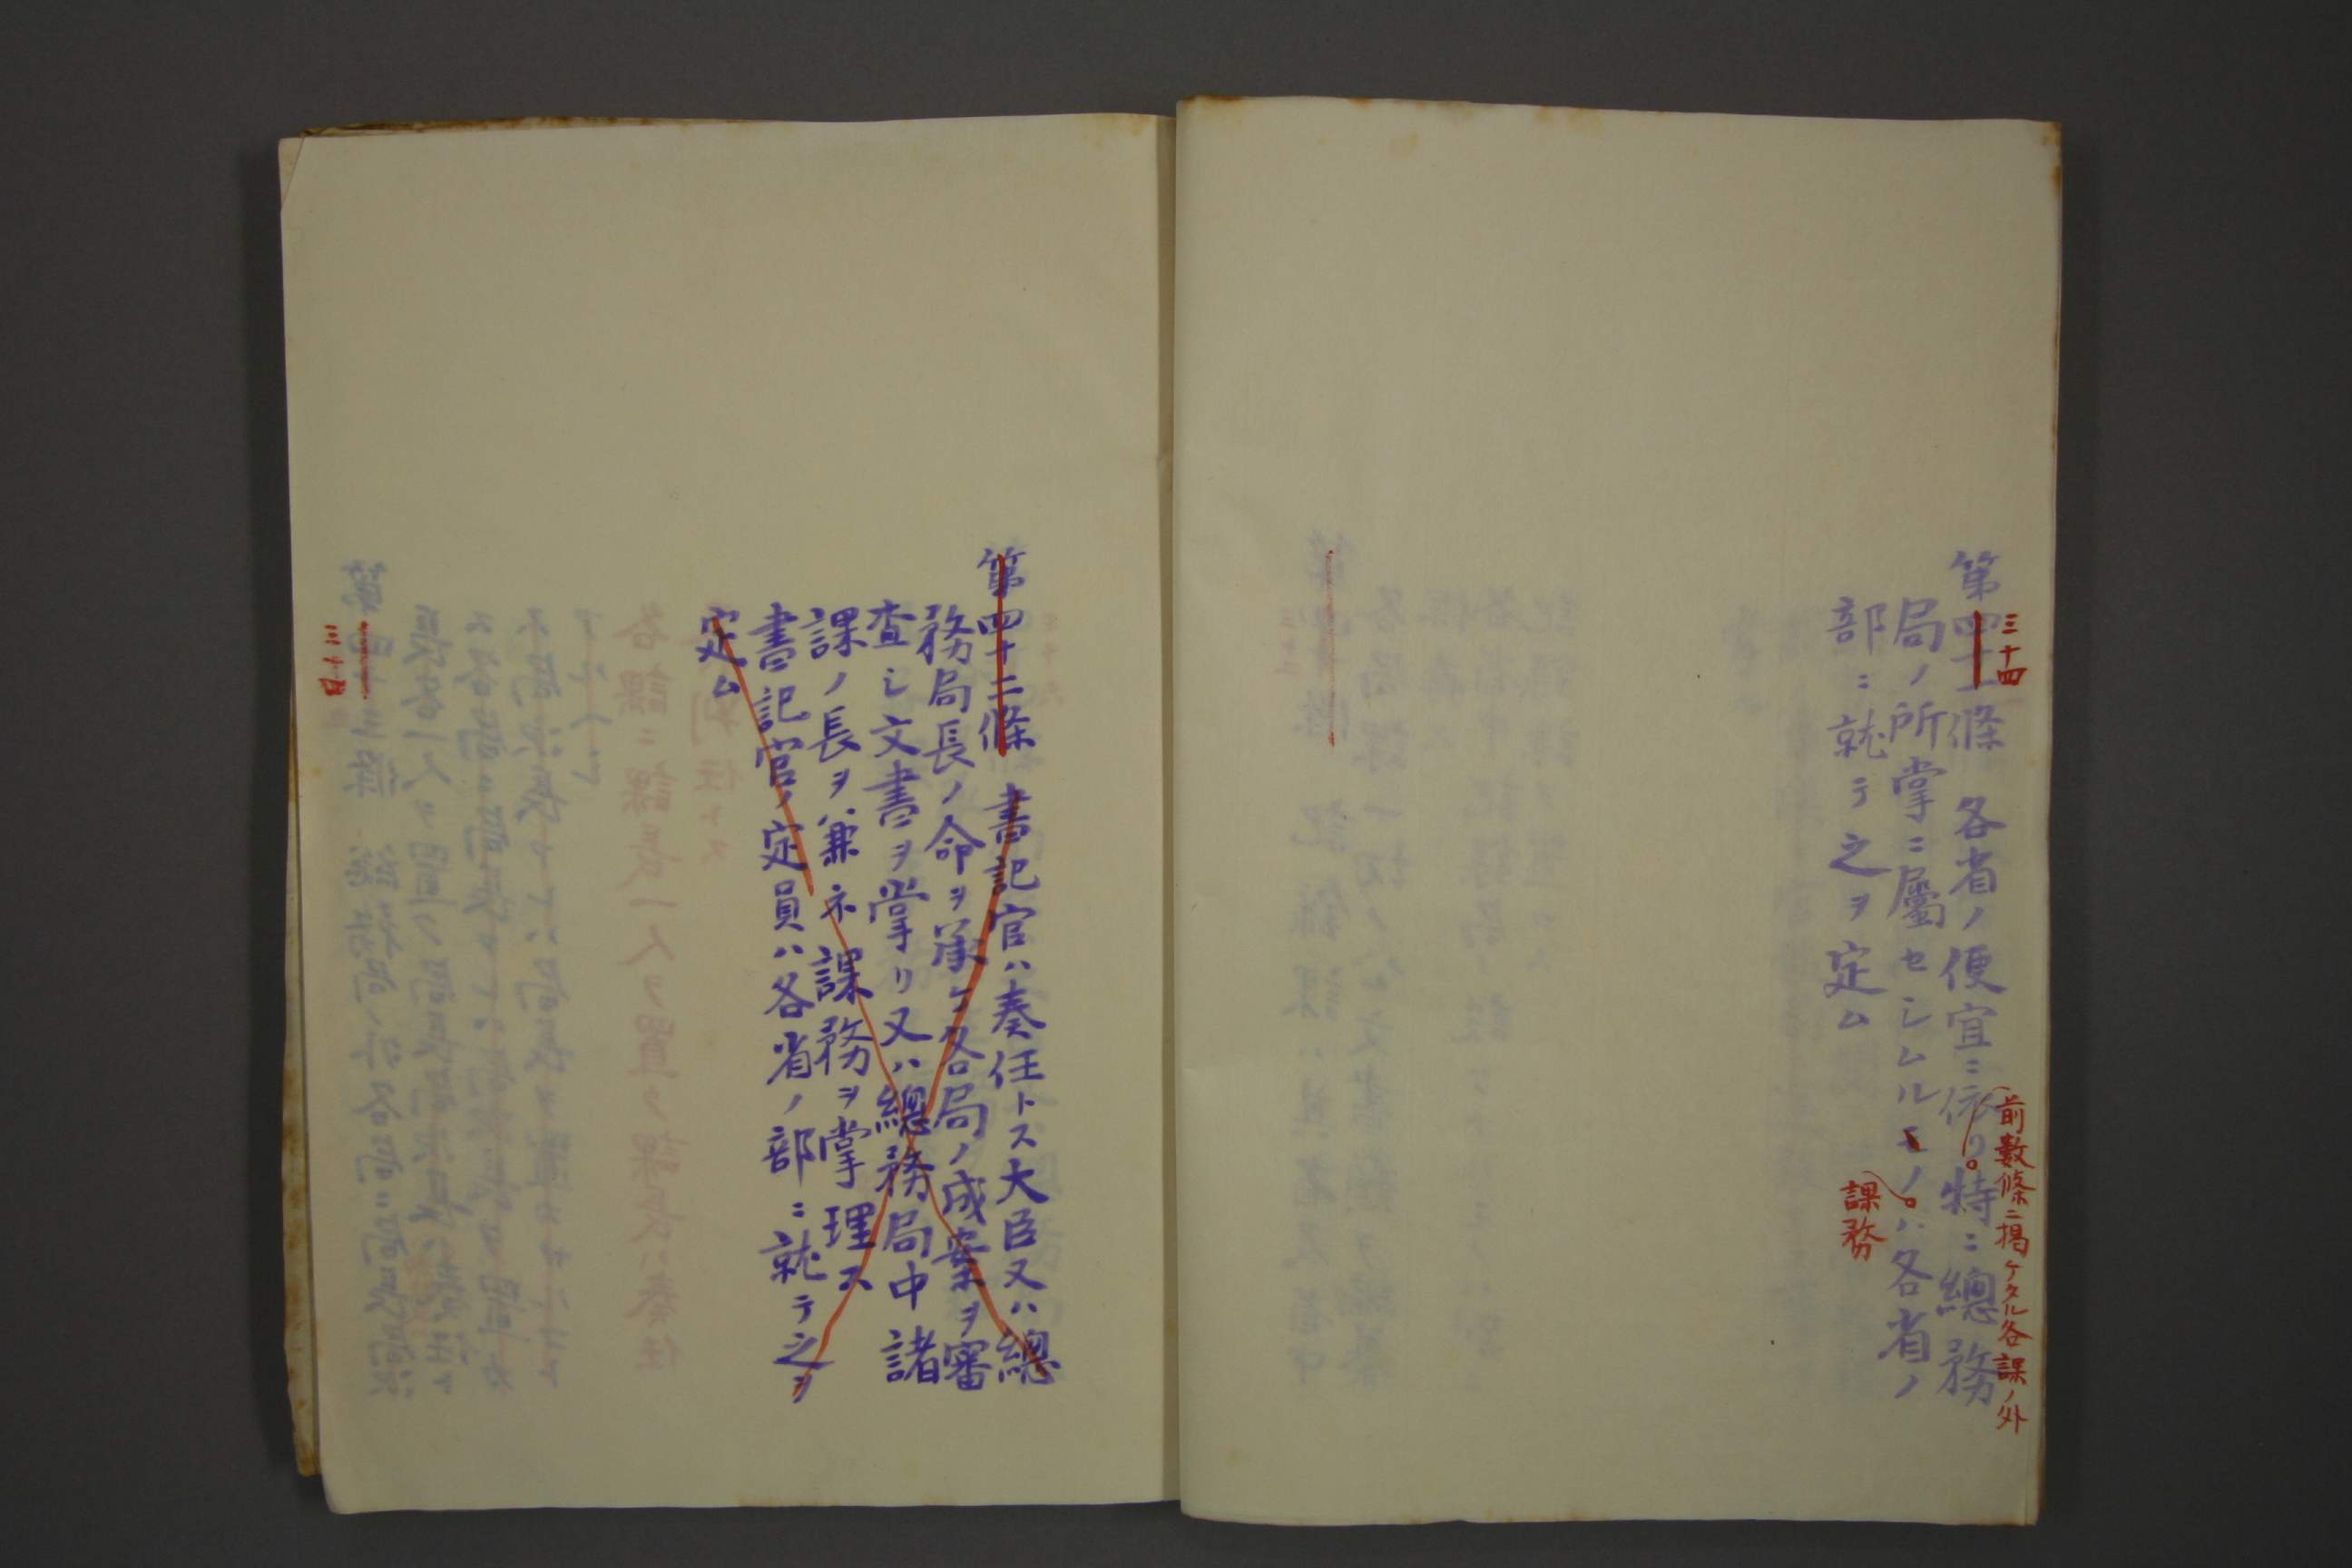 三十四
第四十一條　各省ノ便宜ニ依リ特ニ總務
前數條ニ揭ケタル各課ノ外
局ノ所掌ニ屬セシムルモノハ各省ノ
課務
部ニ就テ之ヲ定ム
第四十二條　書記官ハ奏任トス大臣又ハ總
務局長ノ命ヲ承ケ各局ノ成案ヲ審
査シ文書ヲ掌リ又ハ總務局中諸
課ノ長ヲ兼ネ課務ヲ掌理ス
書記官ノ定員ハ各省ノ部ニ就テ之ヲ
定ム